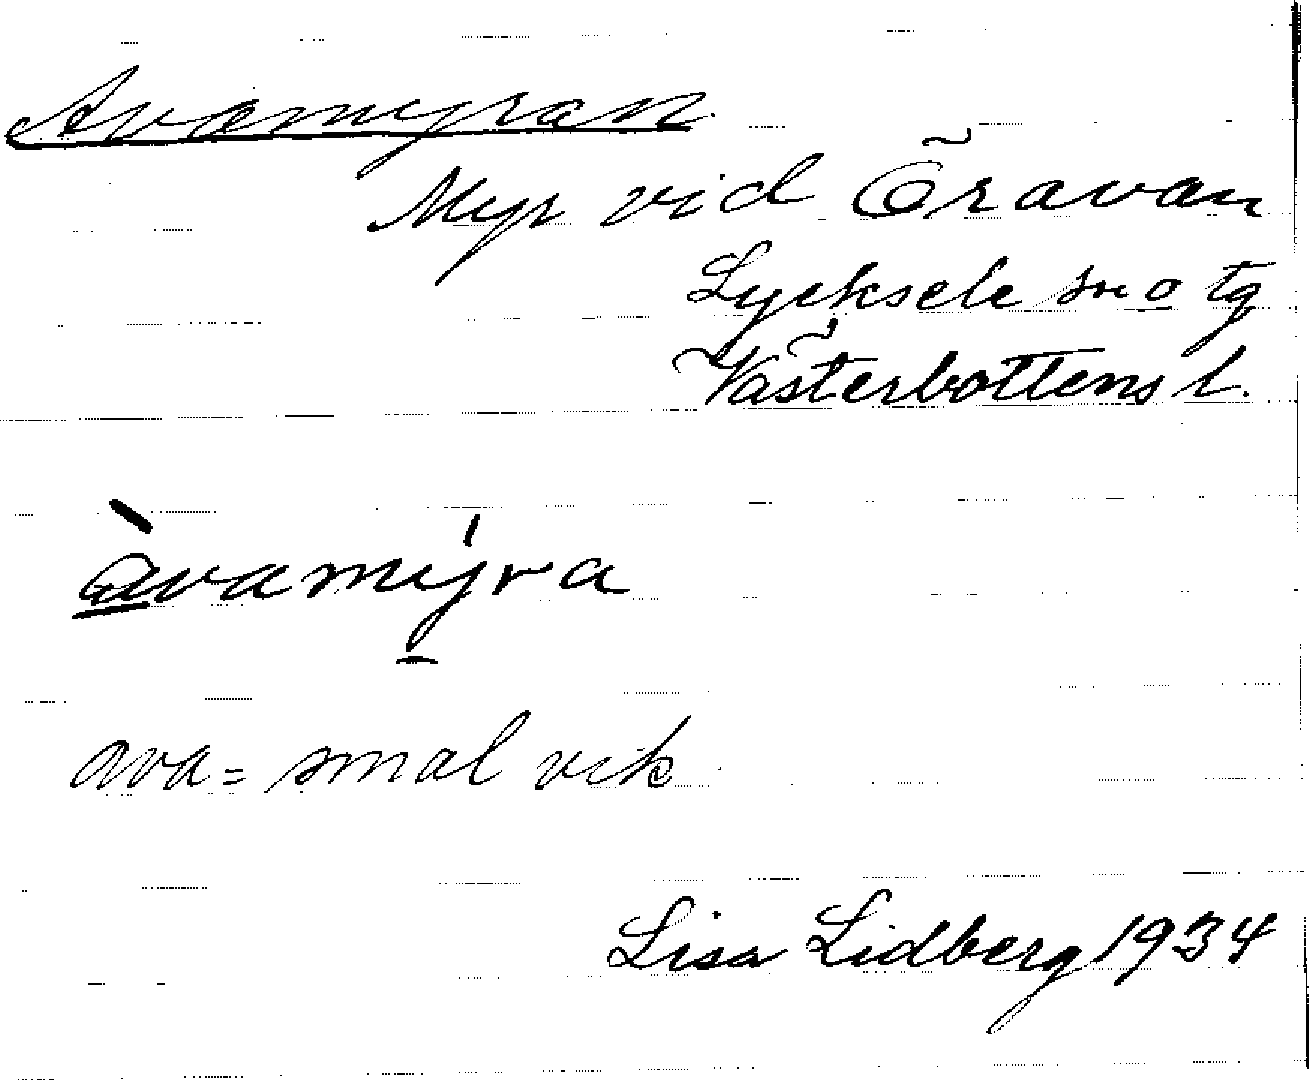 Avamyran
Myr vid Öravan
Lycksele sn o tg
Västerbottens l.
àvamýra
ava = smal vik
Lisa Lidberg 1934